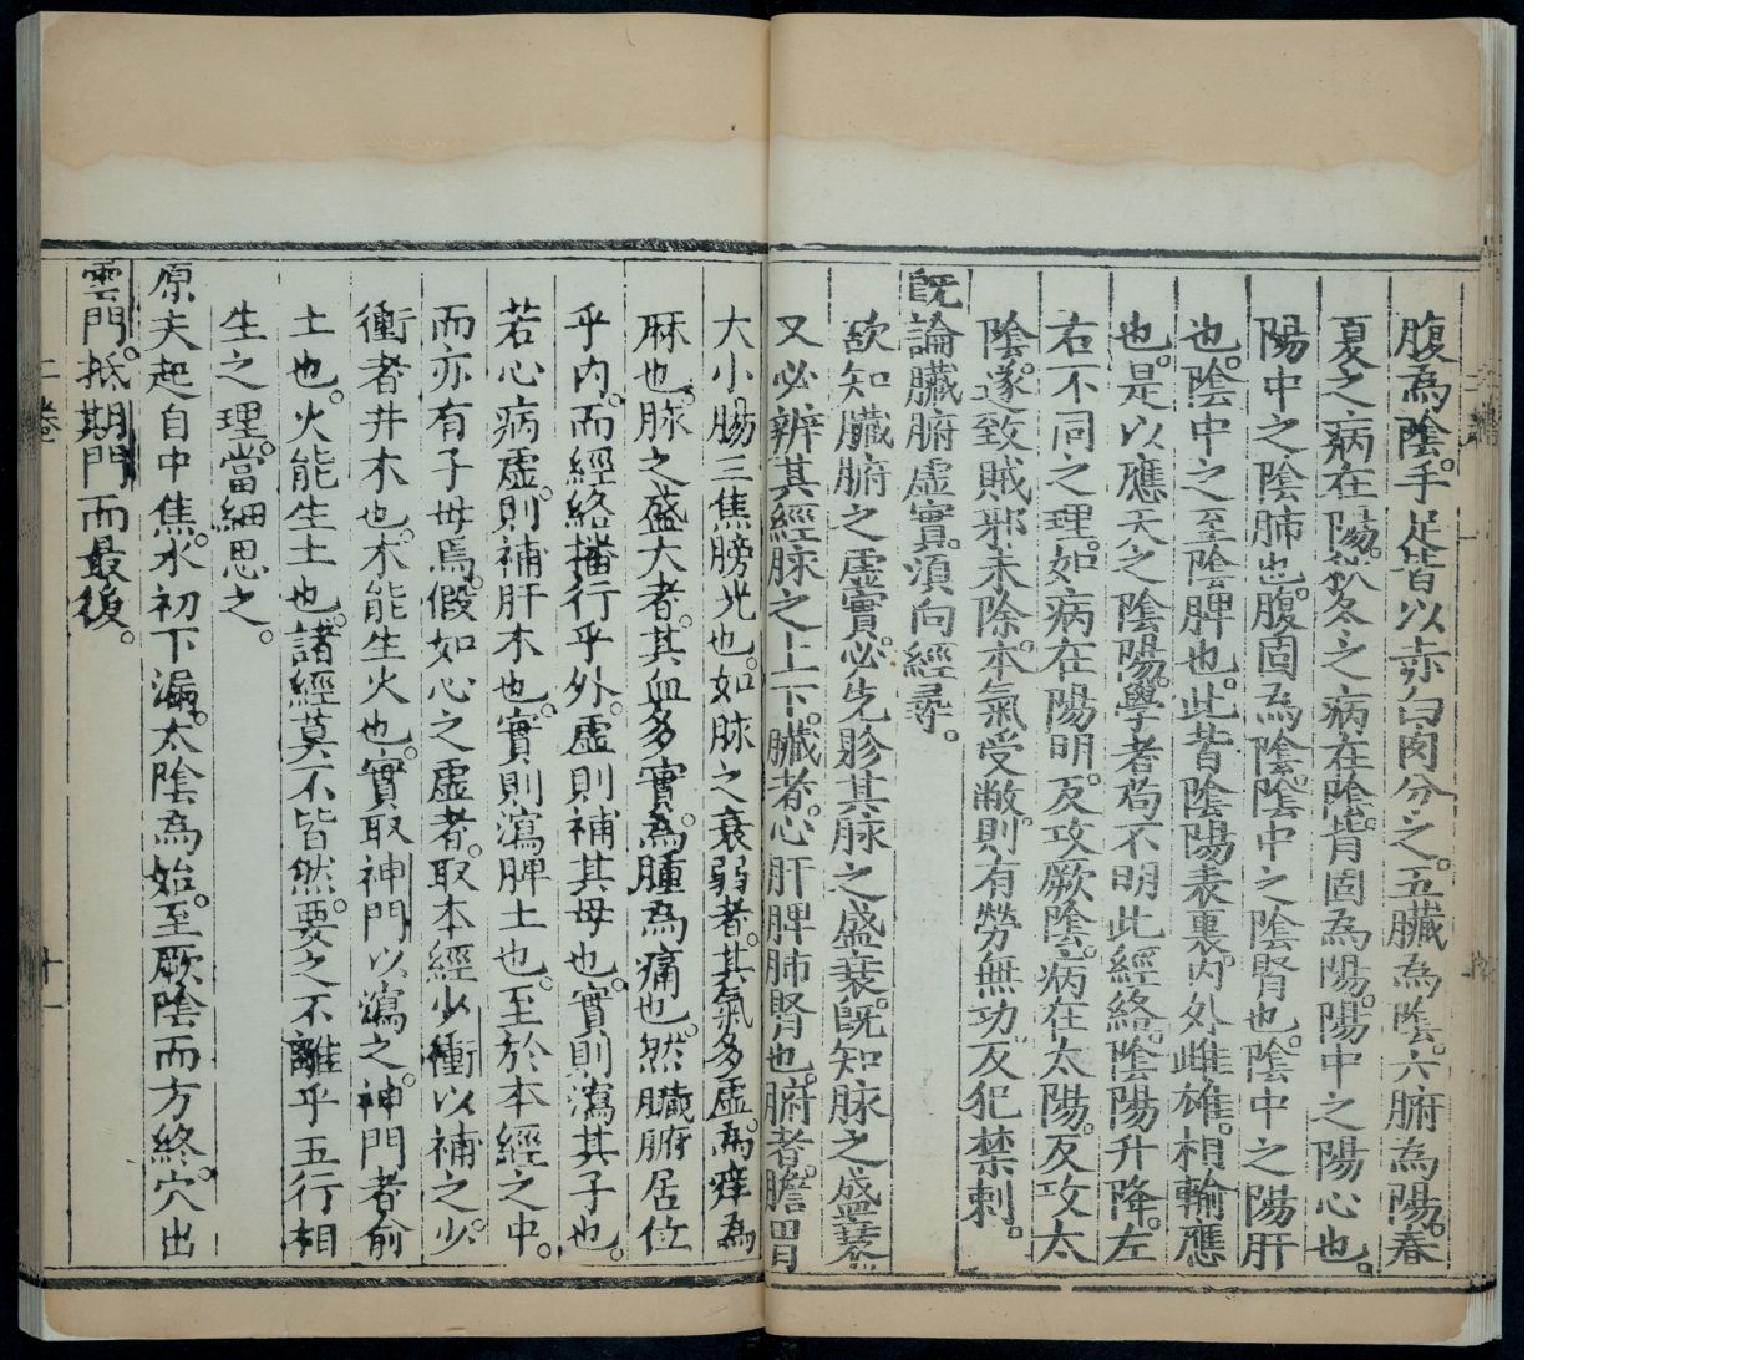 腹為陰。手足皆以赤白肉分之。五臟為陰。六腑為陽。春
夏之病在陽。秋冬之病在陰。背固為陽。陽中之陽心也。
陽中之陰肺也。腹固為陰。陰中之陰腎也。陰中之陽肝
也。陰中之至陰脾也。此皆陰陽表裏。內外雌雄。相輸應
也。是以應天之陰陽。學者尚不明此經絡。陰陽升降。左
右不同之理。如病在陽明。反攻厥陰。病在太陽。反攻太
陰。遂致賊邪未除。本氣受敝。則有勞無功。反犯禁刺。
既論臟腑虛實。須向經尋。
欲知臟腑之虛實。必先胗其脉之盛衰。既知脉之盛衰
又必辨其經脉之上下。臟者。心肝脾肺腎也。腑者。膽胃
大小腸三焦膀光也。如脉之衰弱者。其氣多虛。為痒為
麻也。脉之盛大者。其血多實。為腫為痛也。然臟腑居位
乎內。而經絡播行乎外。虛則補其母也。實則瀉其子也。
若心病虛。則補肝木也。實則瀉脾土也。至於本經之中。
而亦有子母焉。假如心之虛者。取本經少衝以補之。少
衝者井木也。木能生火也。實取神門以瀉之。神門者俞
土也。火能生土也。諸經莫不皆然。要之不離乎五行相
生之理。當細思之。
原夫起自中焦。水初下漏。太陰為始。至厥陰而方終。穴出
雲門。抵期門而最後。
二卷
十一